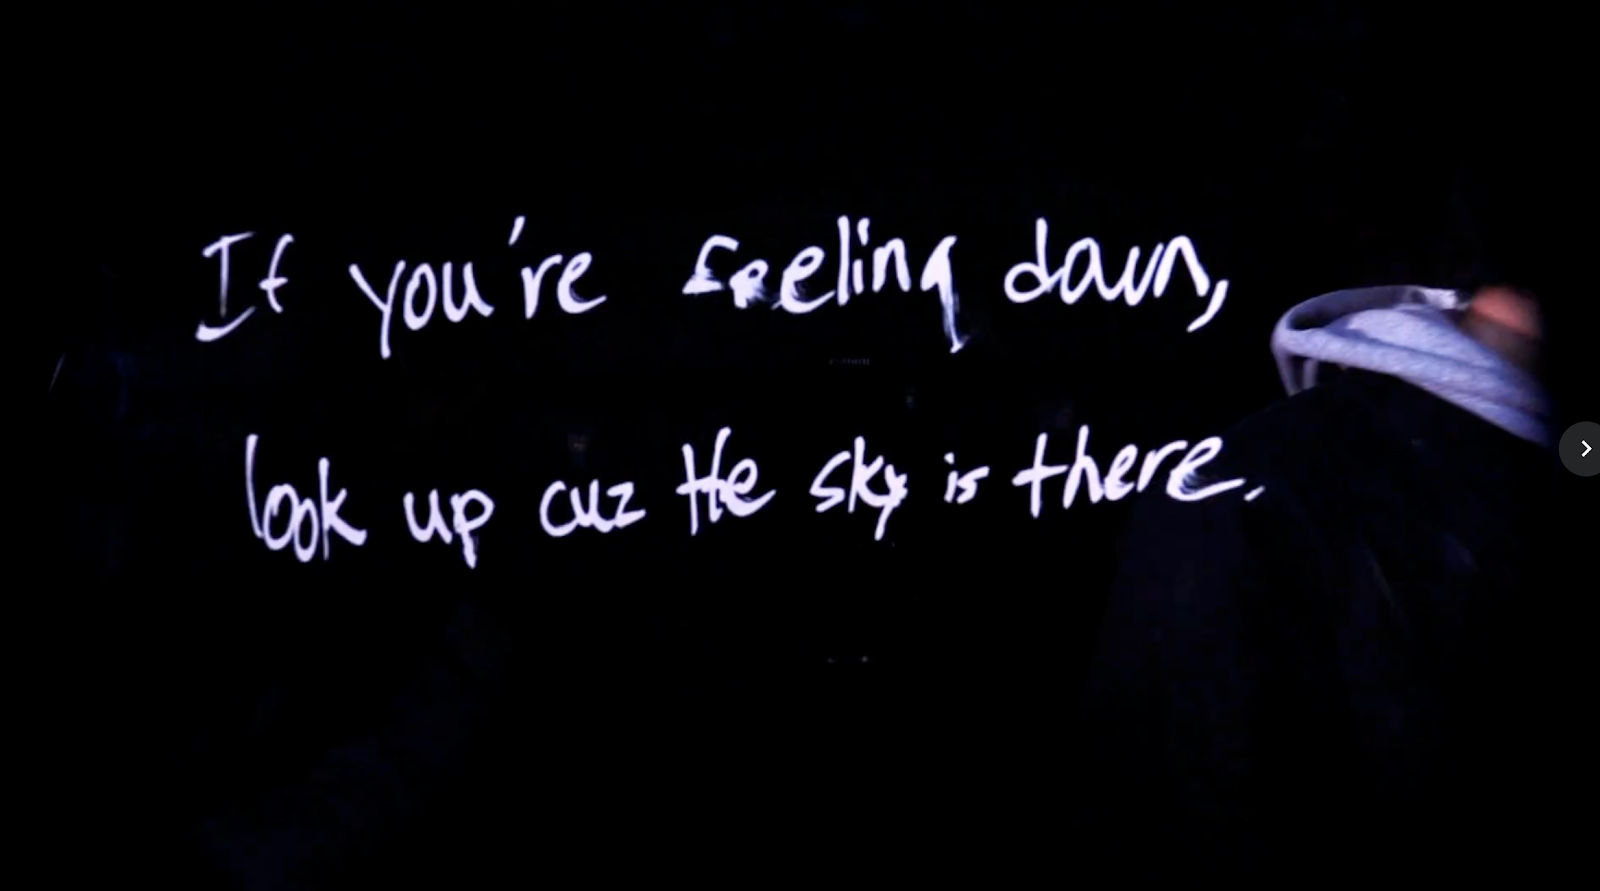 If you're feeling down,
look up cuz the sky is there.